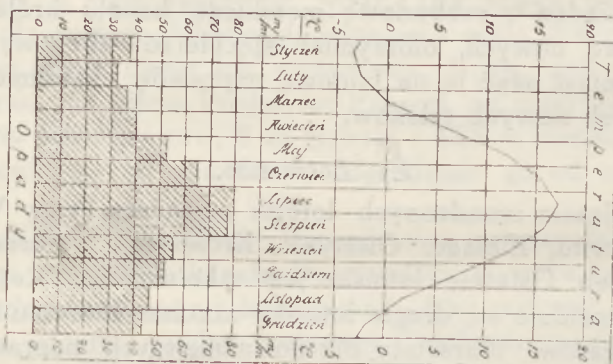 0 10 20 30 40 50 60 70 80 90 m/m °C -5 0 5 10 15 20
Styczeń
Luty
Marzec
Kwiecień
Maj
Czerwiec
Lipiec
Sierpień
Wrzesień
Październ
Listopad
Grudzień
Opady
Temperatura
0 10 20 30 40 50 60 70 80 90 m/m °C -5 0 5 10 15 20